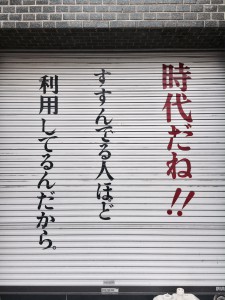 時代だね!!
すすんでる人ほど
利用してるんだから。